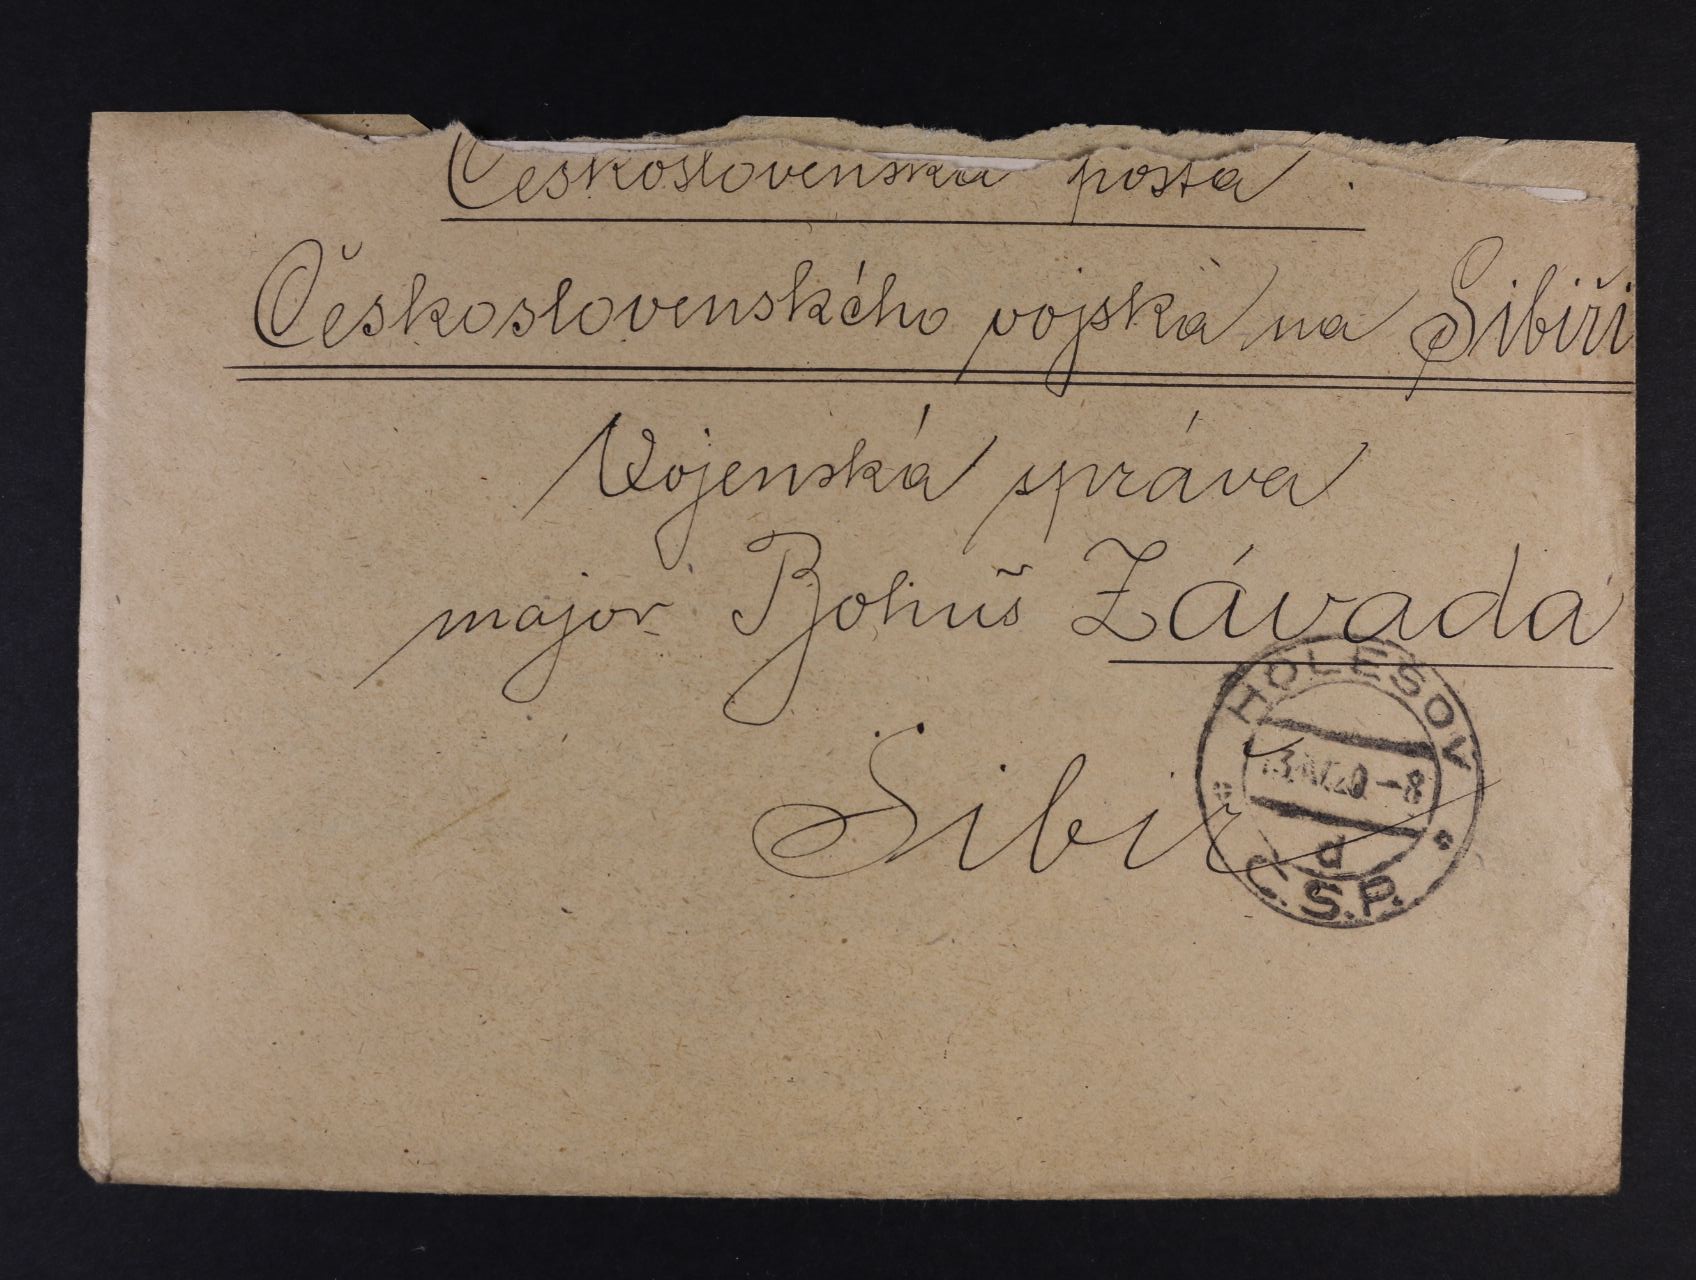 Československá pošta.
Československého vojska na Sibiři
Vojenská správa
major Bohuš Závada
Sibiř
HOLEŠOV
20-8
d
Č.S.P.